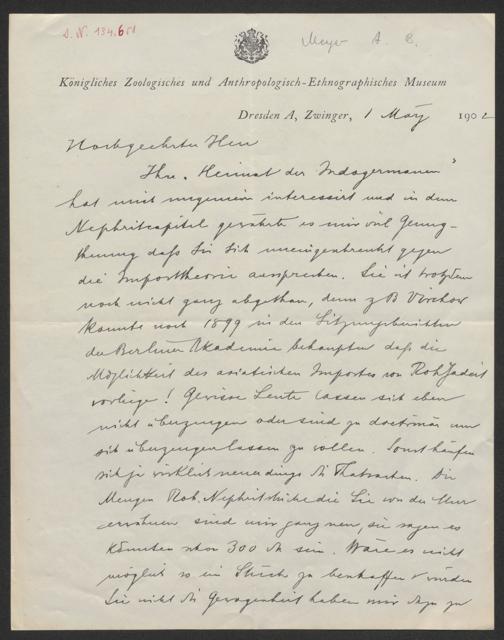 I. N. 194.651
Meyer A. B.
Königliches Zoologisches und Anthropologisch-Ethnographisches Museum
Dresden A, Zwinger, 1 März 1902
Hochgeehrter Herr
Ihre „Heimat der Indogermanen"
hat mich ungemein interessirt und in dem
Nephritcapitel gewährte es mir viel Genug-
thuung daß Sie Sich uneingeschränkt gegen
die Importtheorie aussprechen. Sie ist trotzdem
noch nicht ganz abgethan, denn z B Virchow
konnte noch 1899 in den Sitzungsberichten
der Berliner Akademie behaupten daß die
Möglichkeit des asiatischen Importes von Rohjadeit
vorliege! Gewisse Leute lassen sich eben
nicht überzeugen oder sind zu doctrinär um
sich überzeugen lassen zu wollen. Sonst häufen
sich ja wirklich neuerdings die Thatsachen. Die
Mengen Roh Nephritstücke die Sie von der Mur
erwähnen sind mir ganz neu, sie sagen es
könnten schon 300 St sein. Wäre es nicht
möglich so ein Stück zu beschaffen & würden
Sie nicht die Gewogenheit haben mir dazu zu